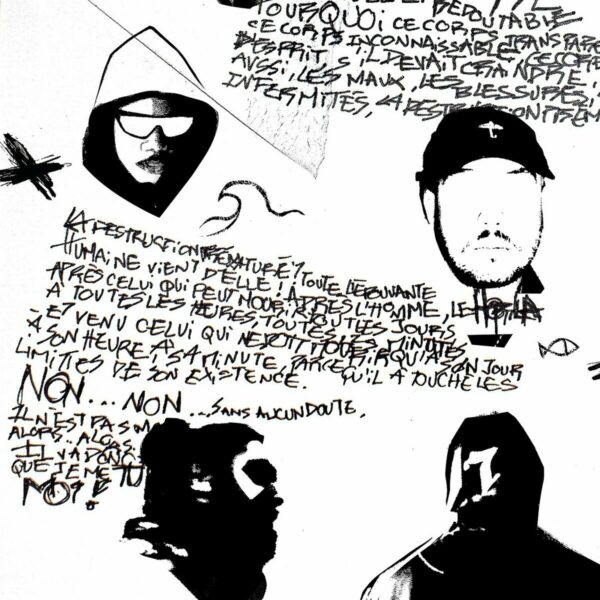 REDOUTABLE
POURQUOI CE CORPS
CE CORPS INCONNAISSABLE, CE CORPS
D'ESPRIT, S'IL DEVAIT CRAINDRE,
AUSSI, LES MAUX, LES BLESSURES,
INFIRMITÉS, LA
LA DESTRUCTION PRÉMATURÉ? TOUTE L'ÉPOUVANTE
HUMAINE VIENT D'ELLE! APRÈS L'HOMME, LE HORLA
APRÈS CELUI QUI PEUT MOURIR TOUT LES JOURS
À TOUTES LES HEURES, TOUTES LES MINUTES
EST VENU CELUI QUI NE DOIT MOURIR QU'À SON JOUR
À SON HEURE, À SA MINUTE, PARCE QU'IL A TOUCHÉ LES
LIMITES DE SON EXISTENCE.
NON... NON... SANS AUCUN DOUTE,
IL N'EST PAS M
ALORS.. ALORS..
IL VA DONC
QUE JE ME TU
MOI!